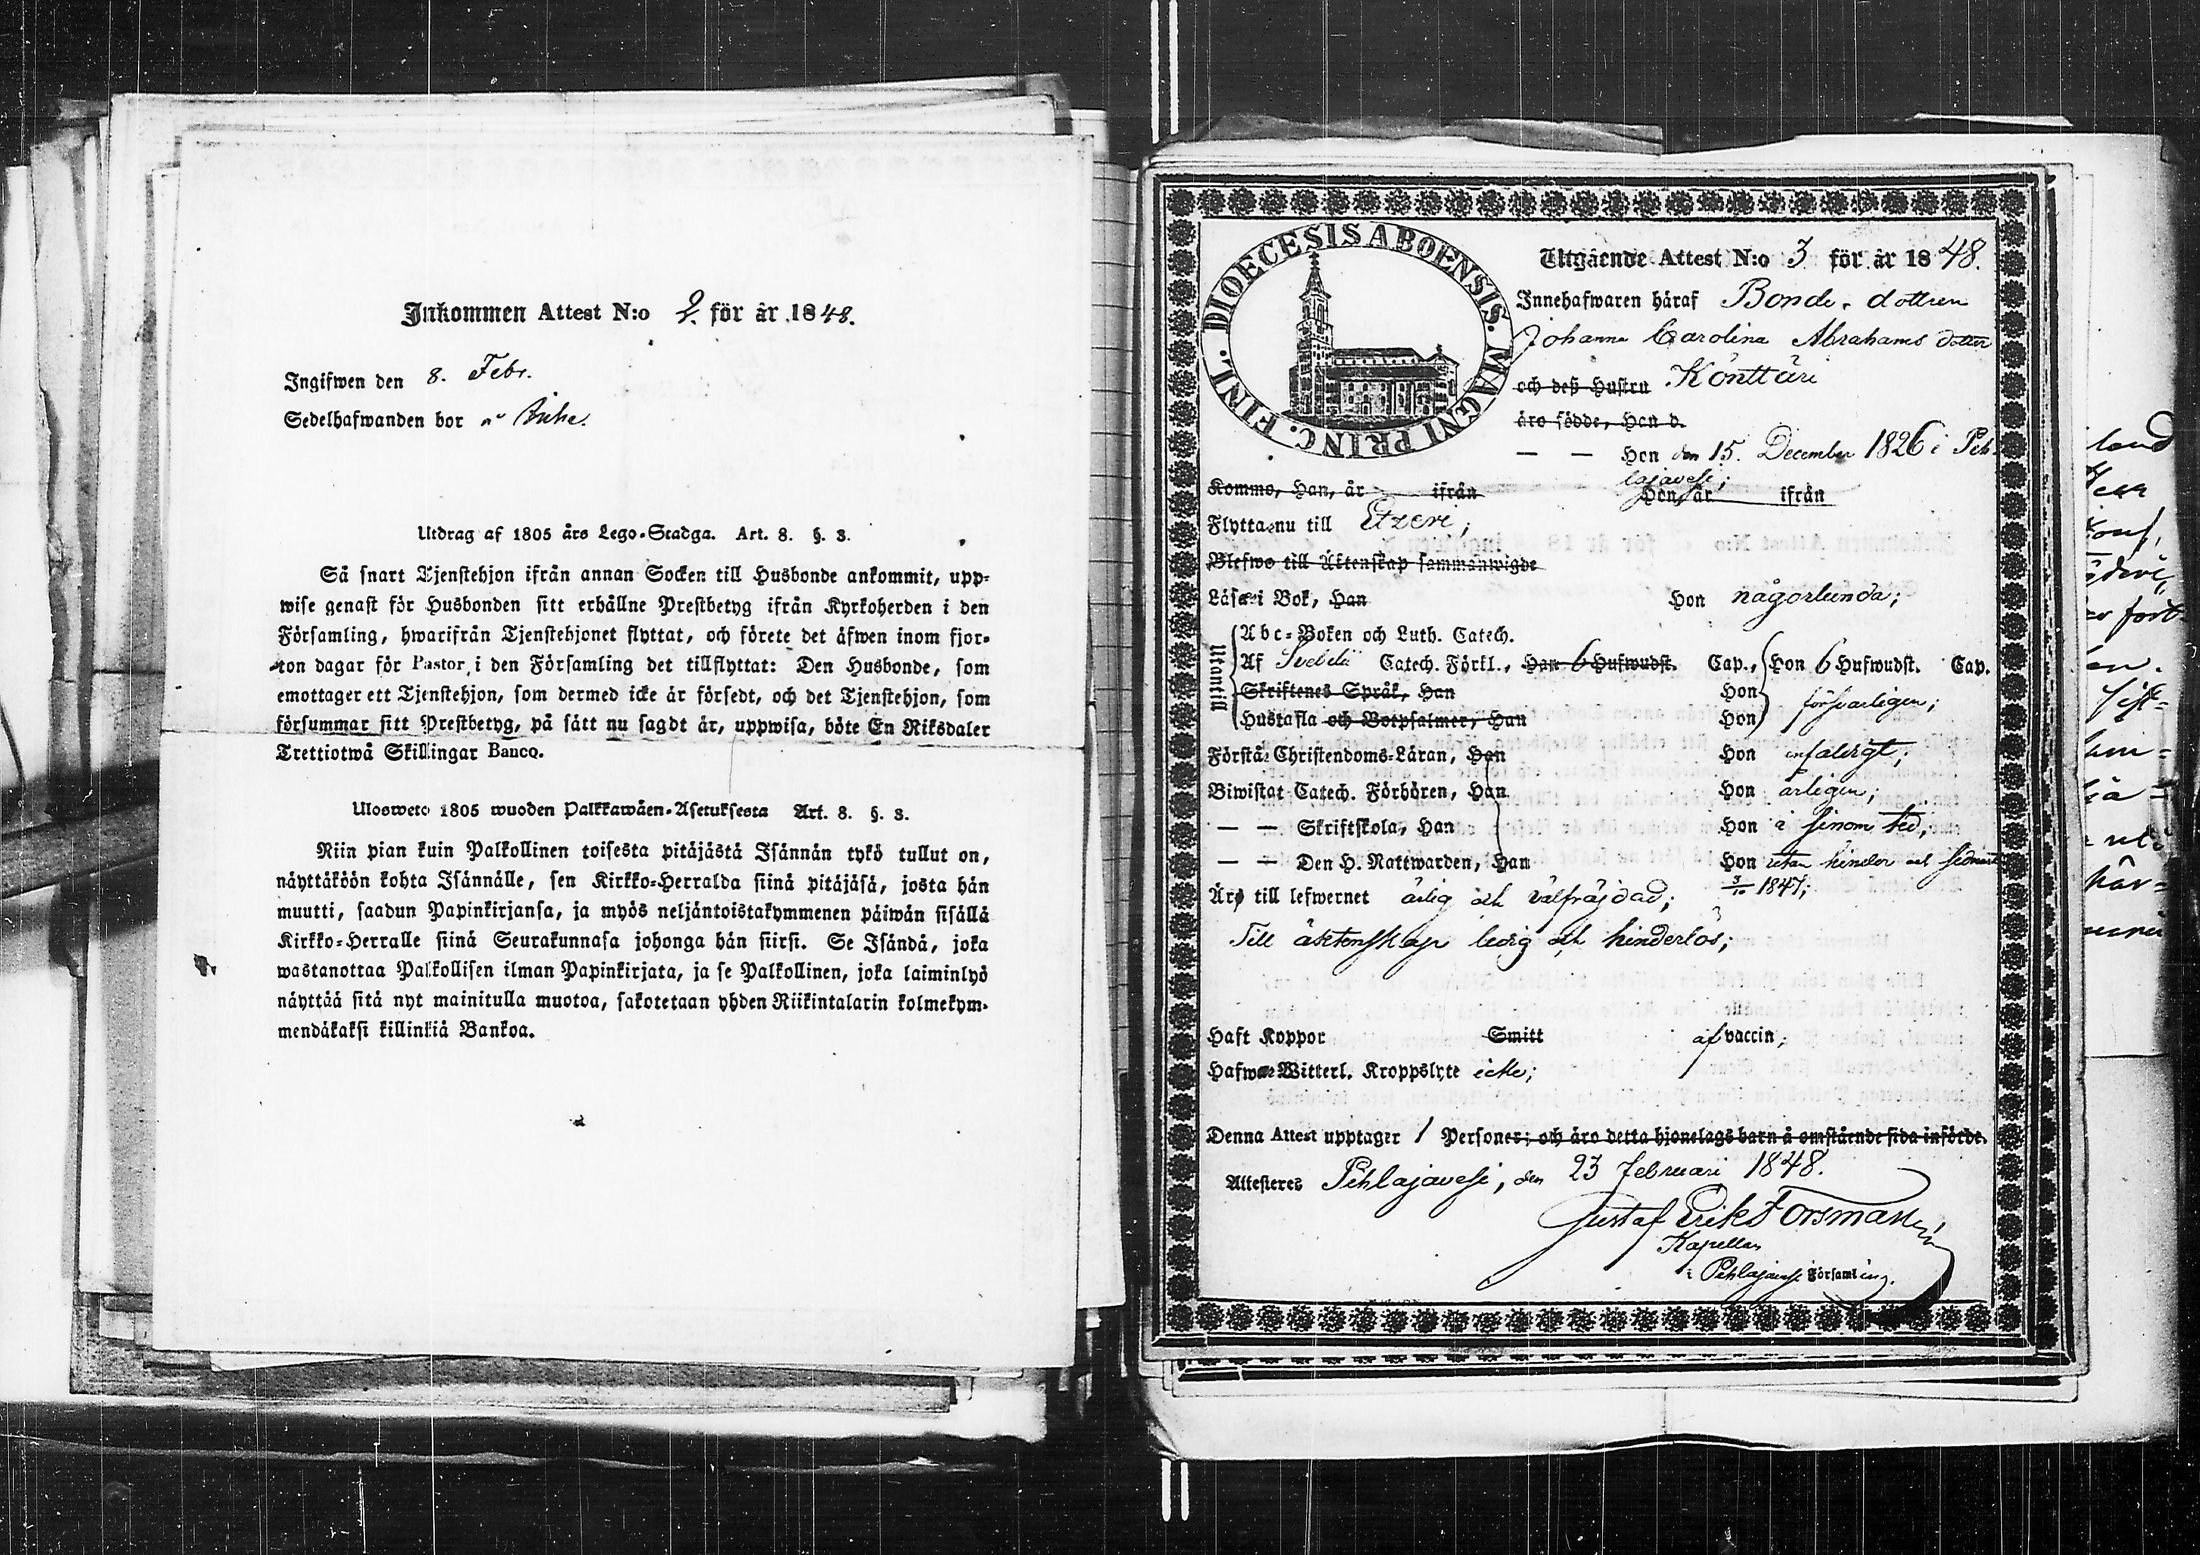 Inkommen Attest N:o 2. för år 1848.
Ingifwen den 8. Febr.
Sedelhafwanden bor
Utdrag af 1805 års Lego-Stadga. Art. 8. §. 3.
Så snart Tjenstehjon ifrån annan Socken till Husbonde ankommit, upp-
wise genast för Husbonden sitt erhållne Prestbetyg ifrån Kyrkoherden i den
Församling, hwarifrån Tjenstehjonet flyttat, och förete det äfwen inom fjor-
ton dagar för Pastor i den Församling det tillflyttat: Den Husbonde, som
emottager ett Tjenstehjon, som dermed icke är försedt, och det Tjenstehjon, som
försummar sitt Prestbetyg, på sätt nu sagdt är, uppwisa, böte En Riksdaler
Trettiotwå Skillingar Banco.
Ulosweto 1805 wuoden Palkkawäen-Asetuksesta Art. 8. §. 3.
Niin pian kuin Palkollinen toisesta pitäjästä Isännän tykö tullut on,
näyttäköön kohta Isännälle, sen Kirkko-Herralda siinä pitäjäsä, josta hän
muutti, saadun Papinkirjansa, ja myös neljäntoistakymmenen päiwän sisällä
Kirkko-Herralle siinä Seurakunnasa johonga hän siirsi. Se Isändä, joka
wastanottaa Palkollisen ilman Papinkirjata, ja se Palkollinen, joka laiminlyö
näyttää sitä nyt mainitulla muotoa, sakotetaan yhden Riikintalarin kolmekym-
mendäkaksi killinkiä Bankoa.
DIOECESIS ABOENSIS. MAGNI PRINC. FINL.
Utgående Attest N:o 3 för år 1848.
Innehafwaren häraf Bonde-dottren
Johanna Carolina Abrahams dotter
och deß Hustru Könttäri
äro födde, Han d.
— — Hon den 15. December 1826 i Pih-
lajavesi;
Komme, Han, år ifrån Hon, år ifrån
Flytta nu till Etzeri;
Blefwo till Äktenskap sammanwigde
Läsa i Bok, Han Hon någorlunda;
Utantill
Abc-Boken och Luth. Catech.
Af Svebelii Catech. Förkl., Han 6 Hufwudst. Cap., Hon 6 Hufwudst. Cap.
Skriftenes Språk, Han Hon
Hustafla och Botpsalmer, Han Hon försvarligen;
Förstå Christendoms-Läran, Han Hon enfaldigt;
Biwistat Catech. Förhören, Han Hon årligen;
— — Skriftskola, Han Hon i sinom tid;
— — Den H. Nattwarden, Han Hon utan hinder och sednast
3/10 1847;
Äro till lefwernet ärlig och välfräjdad;
Till äktenskap ledig och hinderlös;
Haft Koppor Smitt af vaccin;
Hafwa Witterl. Kroppslyte icke;
Denna Attest upptager 1 Personer; och äro detta hjonelags barn å omstående sida införde.
Attesteres Pihlajavesi, den 23 Februari 1848.
Gustaf Erik Forsman
Kapellan
i Pihlajavesi Församling.
land